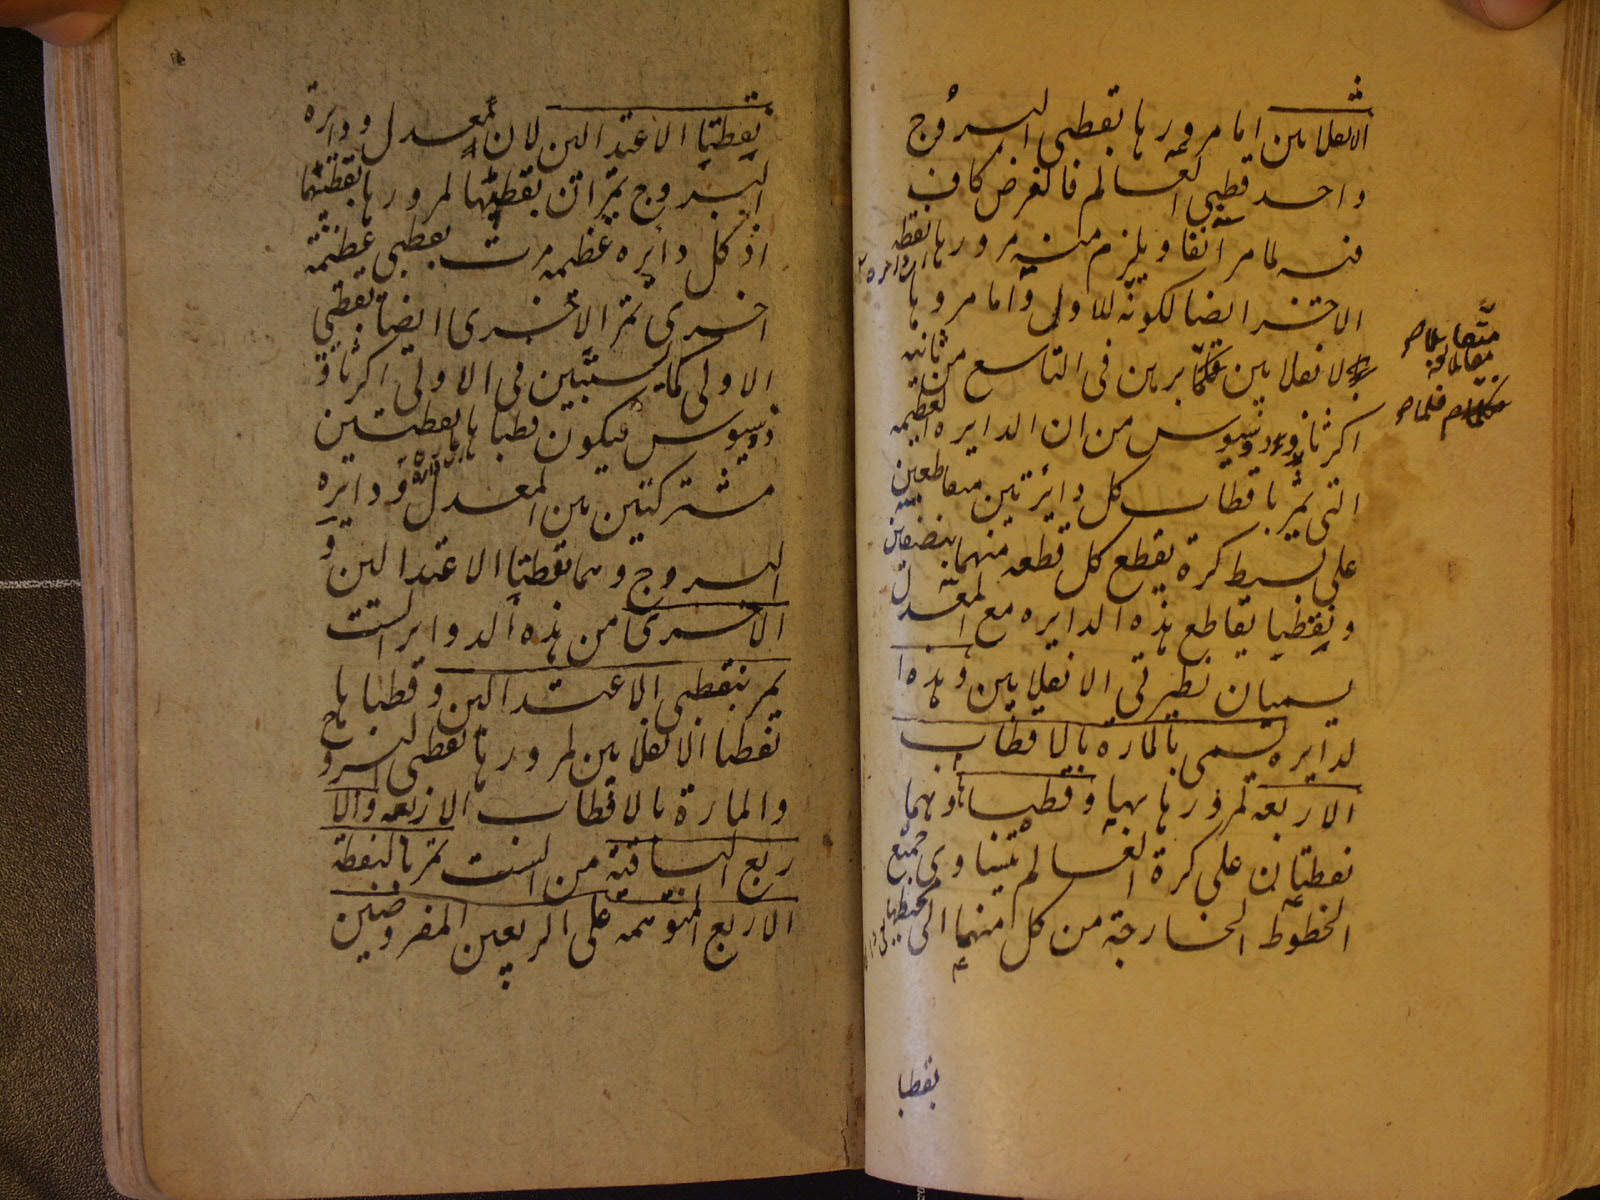 الانقلابين اما مرورها بقطبى البروج
واحد قطبى العالم فالغرض كاف
فيه لما مر آنفا ويلزم منه مرورها بقطبى
الاخر ايضا لكونه للاولى واما مرورها
بالانقلابين فلما برهن فى التاسع من ثانيه
اكرثاوذوسيوس من ان الدايرة العظيمه
التى تمر باقطاب كل دائرتين متقاطعين
على بسيط كرة يقطع كل قطعه منهما بنصفين
ونقطتا تقاطع هذه الدايره مع المعدل
يسميان نظيرتى الانقلابين وهذه ا
لدايره تسمى بالمارة بالاقطاب
الاربعة لمرورها بها وقطباها وهما
نقطتان على كرة العالم يتساوى جميع
الخطوط الخارجة من كل منهما الى محيطها
نقطتا
نقطتا الاعتدالين لان معدل ودايرة
البروج تمران بقطبيها لمرورها بقطبيهما
اذ كل دايره عظيمه مرت بقطبى عظيمة
اخرى تمر الاخرى ايضا بقطبى
الاولى كما يستبين فى الاولى اكرثاو
ذوسيوس فيكون قطباها نقطتين
مشتركتين بين المعدل ودايره
البروج وهما نقطتا الاعتدالين و
الاخرى من هذه الدواير الست
يمر بنقطتى الاعتدالين وقطباها
نقطتا الانقلابين لمرورها بقطبى البرو
والمارة بالاقطاب الاربعه والا
ربع الباقية من الست تمر بالنقطة
الاربع المتوهمه على الربعين المفروضين